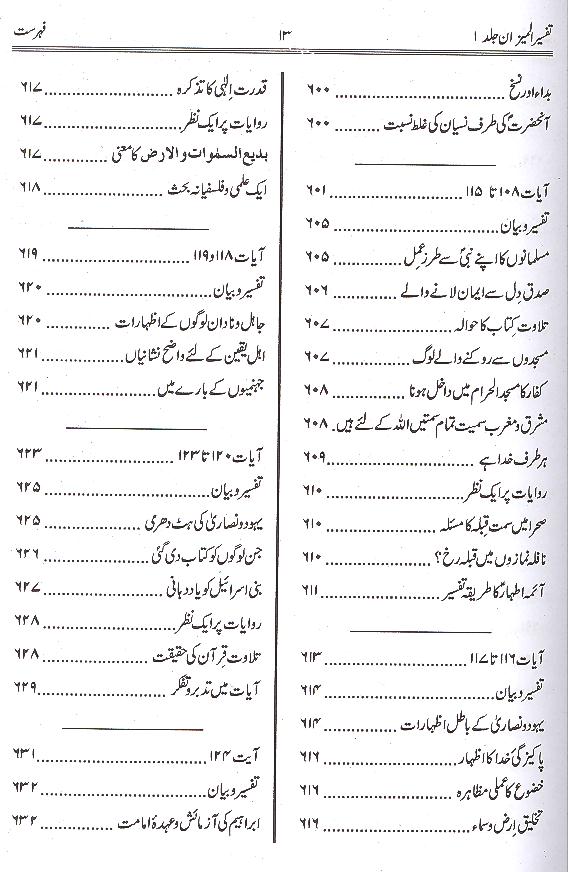 تفسیر المیزان جلد ۱ ۱۳ فہرست
بداء اور نسخ ۶۰۰
آنحضرتؐ کی طرف نسیان کی غلط نسبت ۶۰۰
آیات ۱۰۸ تا ۱۱۵ ۶۰۱
تفسیر و بیان ۶۰۵
مسلمانوں کا اپنے نبیؐ سے طرز عمل ۶۰۵
صدق دل سے ایمان لانے والے ۶۰۶
تلاوت کتاب کا حوالہ ۶۰۷
مسجدوں سے روکنے والے لوگ ۶۰۷
کفار کا مسجد الحرام میں داخل ہونا ۶۰۸
مشرق و مغرب سمیت تمام سمتیں اللہ کے لئے ہیں ۶۰۸
ہر طرف خدا ہے ۶۰۹
روایات پر ایک نظر ۶۱۰
صحرا میں سمت قبلہ کا مسئلہ ۶۱۰
نافلہ نمازوں میں قبلہ رخ؟ ۶۱۰
آئمہ اطہارؑ کا طریقہ تفسیر ۶۱۱
آیات ۱۱۶ تا ۱۱۷ ۶۱۳
تفسیر و بیان ۶۱۴
یہود و نصاریٰ کے باطل اظہارات ۶۱۴
پاکیزگیٔ خدا کا اظہار ۶۱۶
خضوع کا عملی مظاہرہ ۶۱۶
تخلیق ارض و سماء ۶۱۶
قدرت الٰہی کا تذکرہ ۶۱۷
روایات پر ایک نظر ۶۱۷
بدیع السمٰوات والارض کا معنی ۶۱۷
ایک علمی و فلسفیانہ بحث ۶۱۸
آیات ۱۱۸ و ۱۱۹ ۶۱۹
تفسیر و بیان ۶۲۰
جاہل و نادان لوگوں کے اظہارات ۶۲۰
اھل یقین کے لئے واضح نشانیاں ۶۲۱
جہنمیوں کے بارے میں ۶۲۱
آیات ۱۲۰ تا ۱۲۳ ۶۲۳
تفسیر و بیان ۶۲۵
یہود و نصاریٰ کی ہٹ دھرمی ۶۲۵
جن لوگوں کو کتاب دی گئی ۶۲۶
بنی اسرائیل کو یاد دہانی ۶۲۷
روایات پر ایک نظر ۶۲۸
تلاوت قرآن کی حقیقت ۶۲۸
آیات میں تدبر و تفکر ۶۲۹
آیت ۱۲۴ ۶۳۱
تفسیر و بیان ۶۳۲
ابراہیمؑ کی آزمائش و عہدۂ امامت ۶۳۲